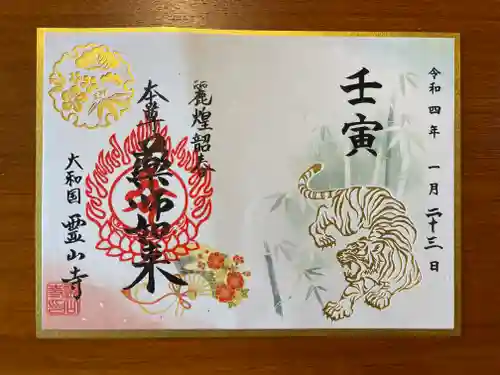 令和四年 一月 二十三日
壬寅
麗煌韶春
本尊
薬師如来
大和国 霊山寺